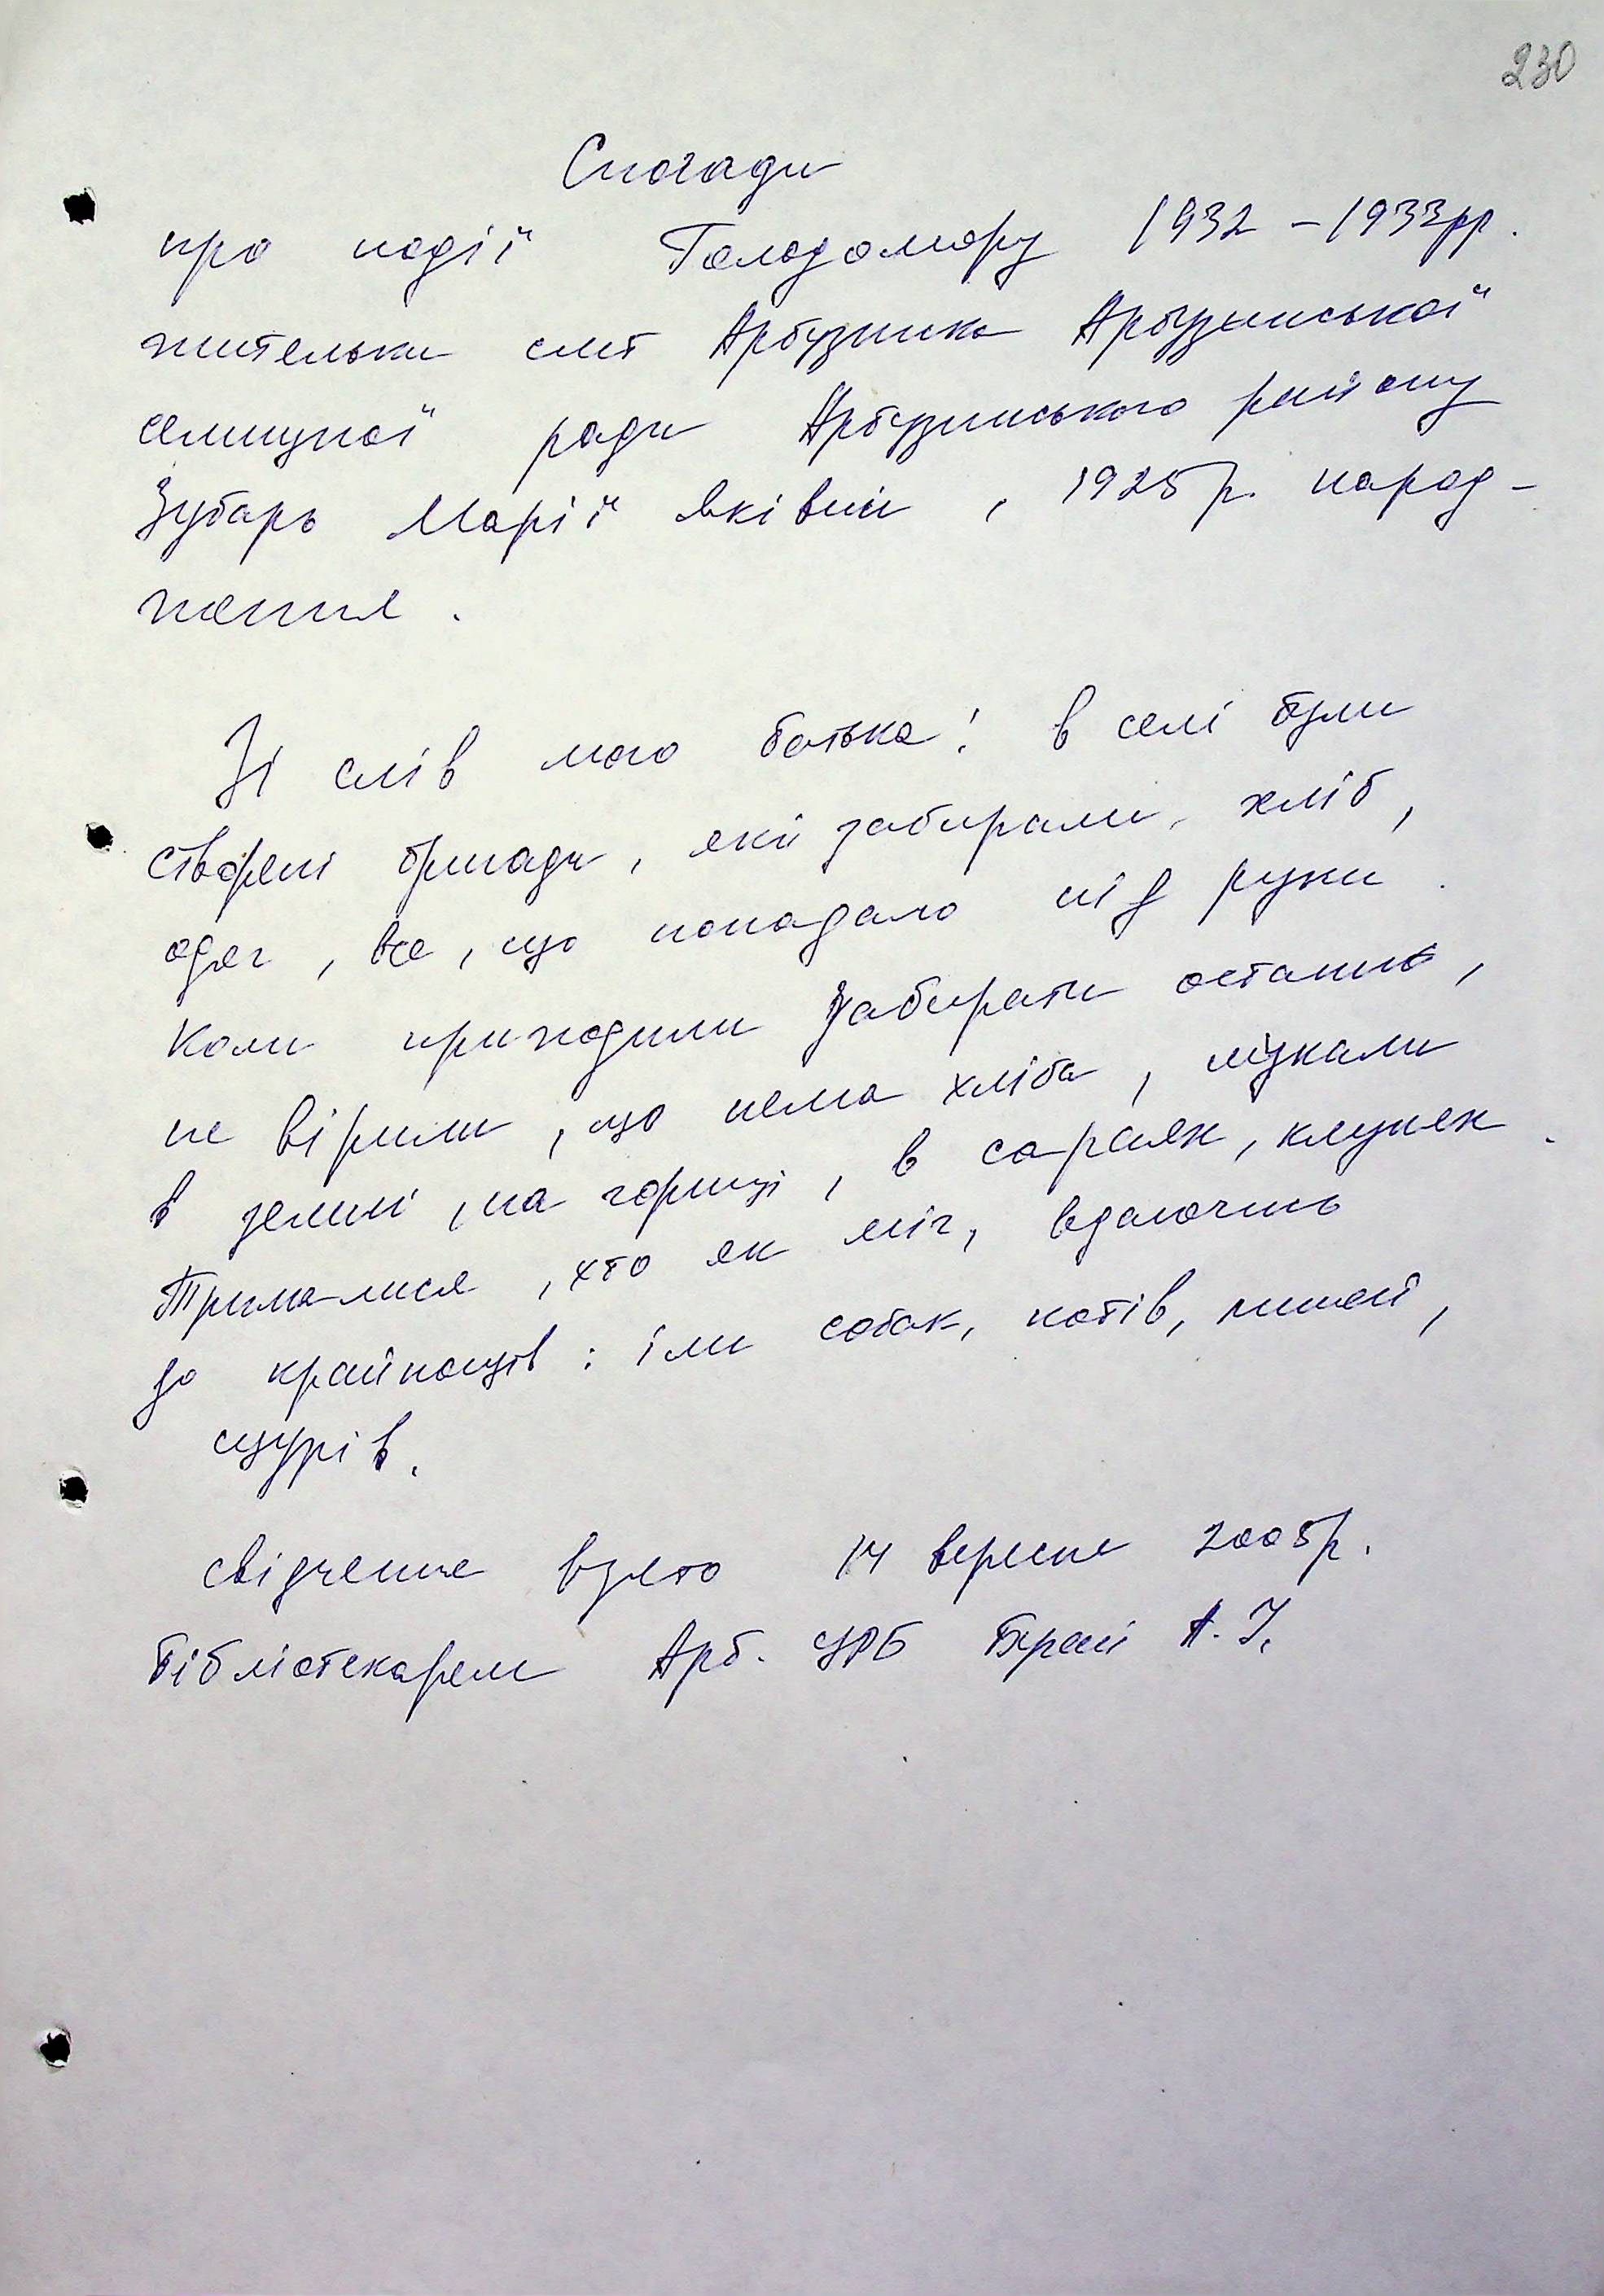 230
Спогади
про події Голодомору 1932 - 1933рр.
жительки смт Арбузинка Арбузинської
селищної ради Арбузинського району
Зубарь Марії Яківни, 1925р. народ-
ження.
Зі слів мого батька: в селі були
створені бригади, які забирали хліб,
одяг, все, що попадало під руки.
Коли приходили забирати останнє,
не вірили, що нема хліба, шукали
в землі, на горищі, в сараях, клунях.
Трималися, хто як міг, вдаючись
до крайнощів: їли собак, котів, мишей,
щурів.
Свідчення взято 14 вересня 2005р.
Бібліотекарем Арб. ЦРБ А. І.